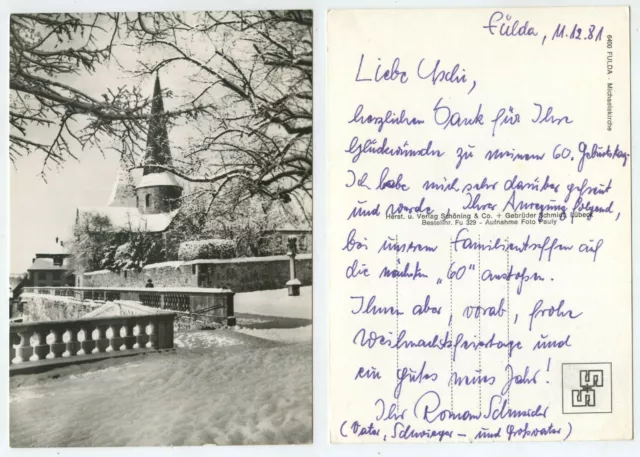 Fulda, 11.12.81
6400 FULDA - Michaelskirche
Liebe Uschi,
herzlichen Dank für Ihre
Glückwünsche zu meinem 60. Geburtstag.
Ich habe mich sehr darüber gefreut
und werde, Ihrer Anregung folgend,
Herst. u. Verlag Schöning & Co. + Gebrüder Schmidt, Lübeck
Bestellnr. Fu 329 - Aufnahme Foto Pauly
bei unserem Familientreffen auf
die nächsten „60" anstoßen.
Ihnen aber, vorab, frohe
Weihnachtsfeiertage und
ein gutes neues Jahr!
Ihr Roman
(Vater, Schwieger- und Großvater)